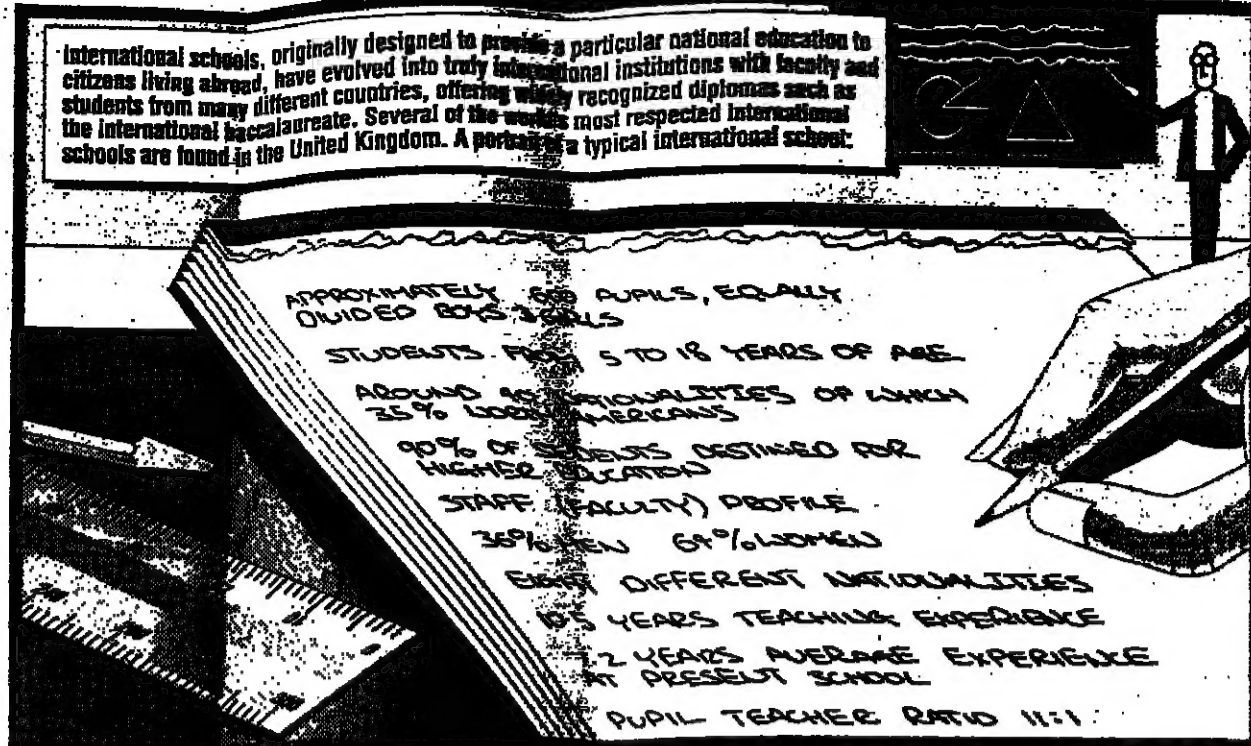 International schools, originally designed to provide a particular national education to
citizens living abroad, have evolved into truly international institutions with faculty and
students from many different countries, offering widely recognized diplomas such as
the international baccalaureate. Several of the world's most respected international
schools are found in the United Kingdom. A portrait of a typical international school:
APPROXIMATELY PUPILS, EQUALLY
DIVIDED BOYS & GIRLS
STUDENTS FROM 5 TO 18 YEARS OF AGE
AROUND NATIONALITIES OF WHICH
35% NORTH AMERICANS
90% OF STUDENTS DESTINED FOR
HIGHER EDUCATION
STAFF (FACULTY) PROFILE
36% MEN 64% WOMEN
EIGHT DIFFERENT NATIONALITIES
YEARS TEACHING EXPERIENCE
YEARS AVERAGE EXPERIENCE
AT PRESENT SCHOOL
PUPIL TEACHER RATIO 11:1